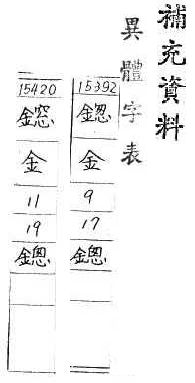 補充資料
異體字表
15392
鍯
金
9
17
鏓
15420
金
11
19
鏓